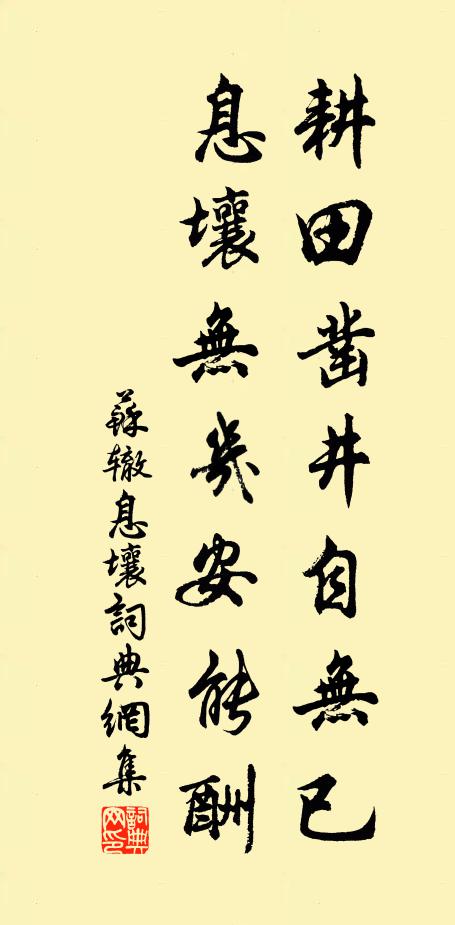 耕田凿井自無已
息壤無幾安能酬
蘇辙息壤詞典網集
詞典网印